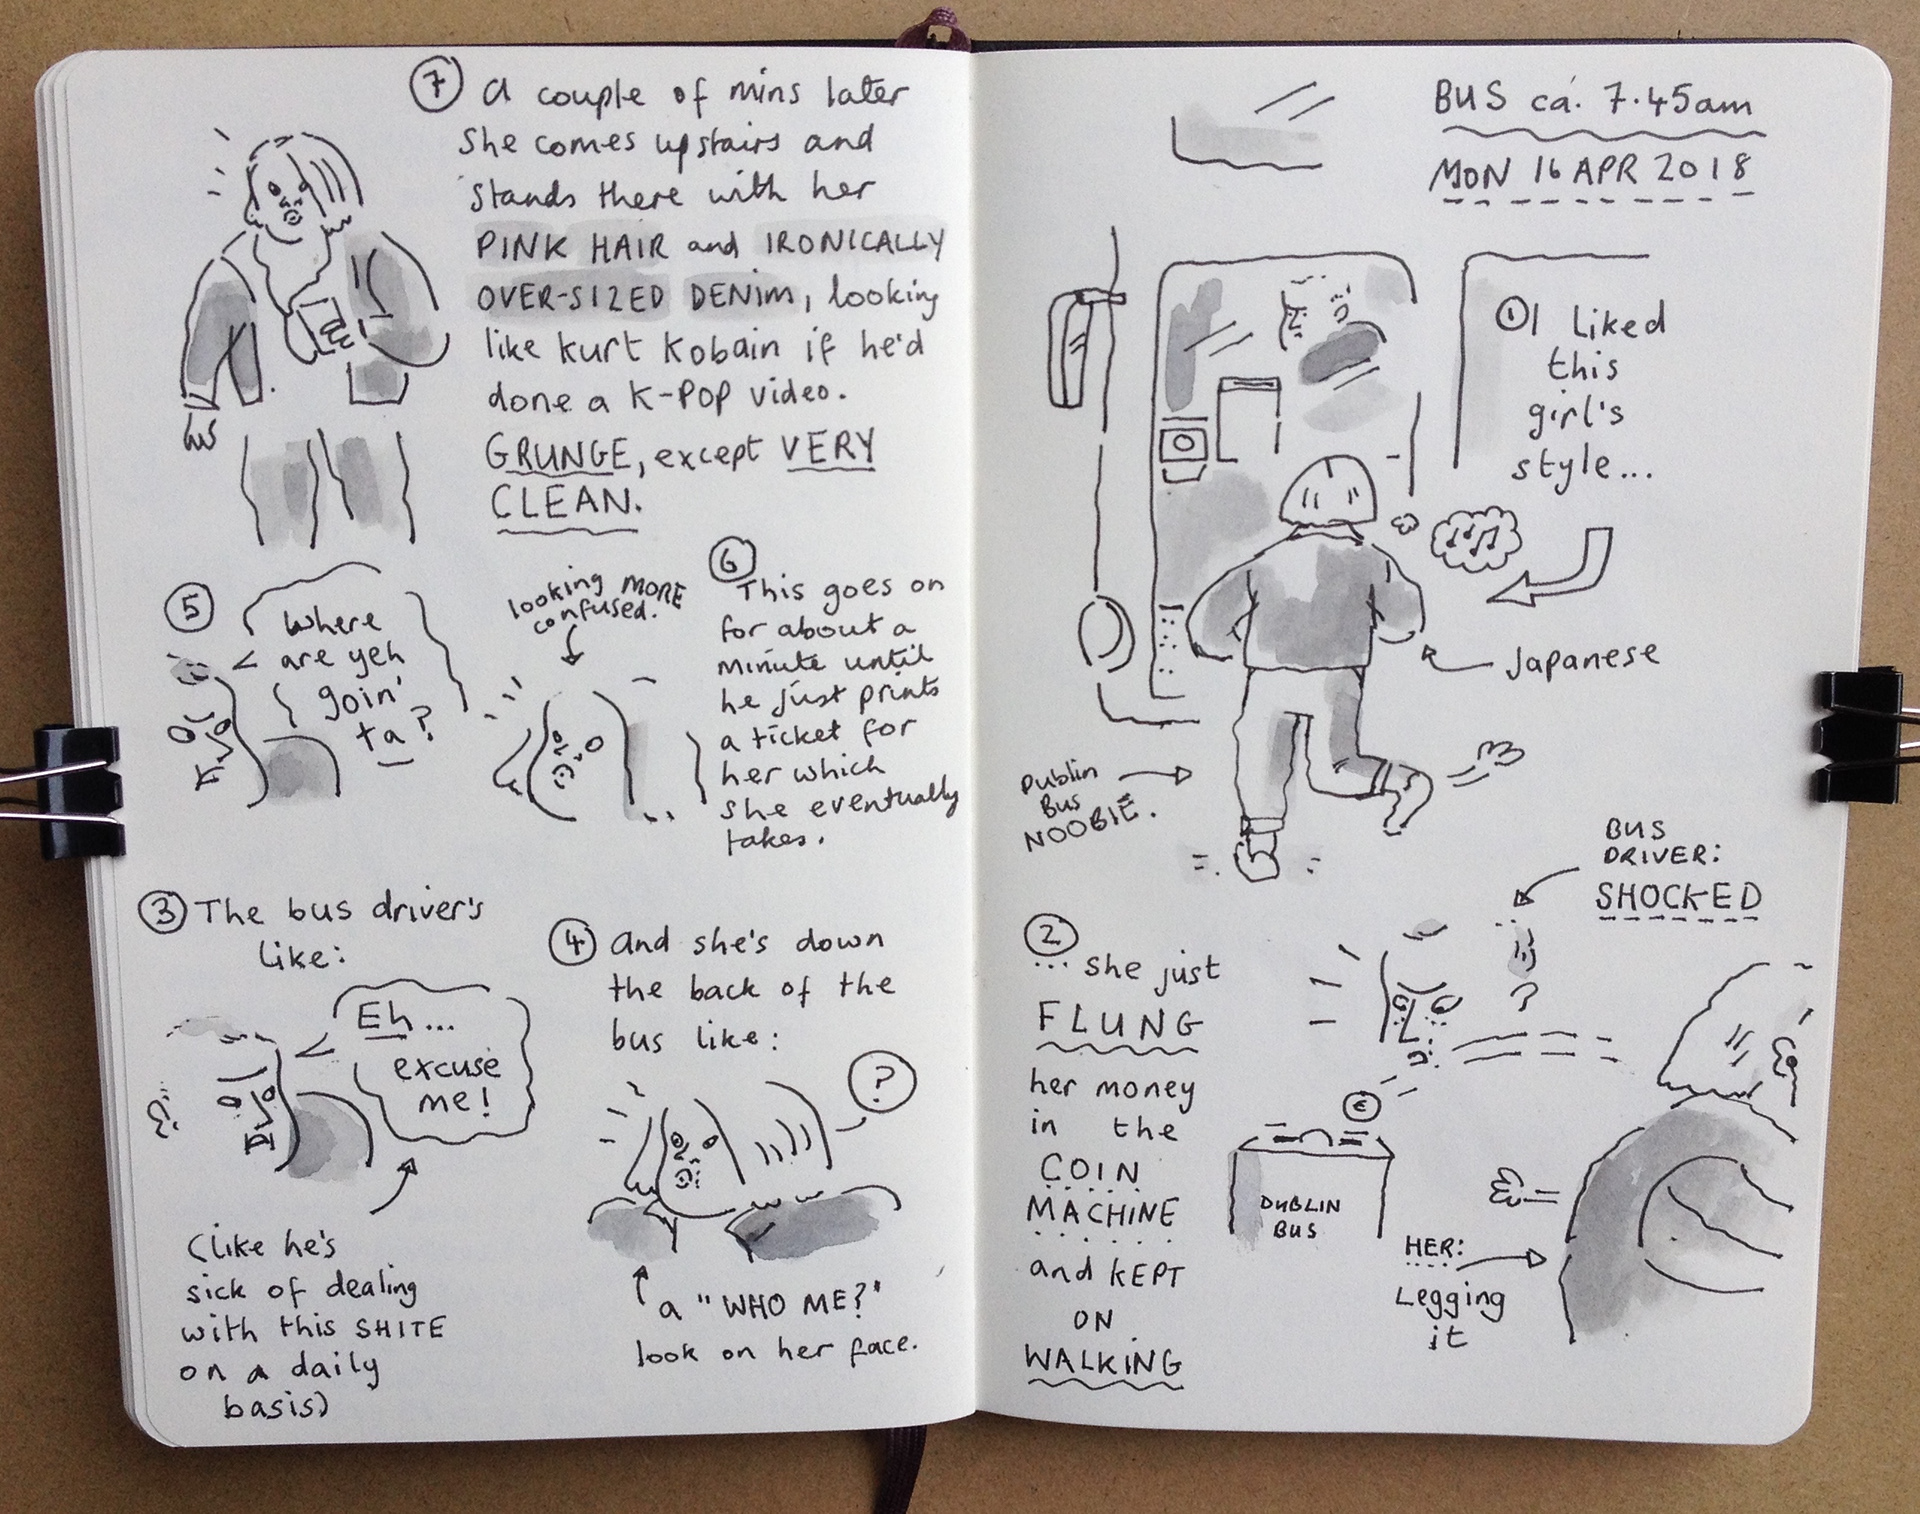 BUS cá. 7.45am
MON 16 APR 2018
① I liked
this
girl's
style...
Japanese
Dublin
Bus
NOOBIE.
BUS
DRIVER:
SHOCKED
②
... she just
FLUNG
her money
in the
COIN
MACHINE
and KEPT
ON
WALKING
?
€
DUBLIN
BUS
HER:
Legging
it
③ The bus driver's
like:
Eh...
excuse
me!
(like he's
sick of dealing
with this SHITE
on a daily
basis)
④ and she's down
the back of the
bus like:
?
a "WHO ME?"
look on her face.
⑤
Where
are yeh
goin'
ta?
looking MORE
confused.
⑥
This goes on
for about a
minute until
he just prints
a ticket for
her which
she eventually
takes.
⑦ A couple of mins later
she comes upstairs and
stands there with her
PINK HAIR and IRONICALLY
OVER-SIZED DENIM, looking
like Kurt Kobain if he'd
done a K-POP video.
GRUNGE, except VERY
CLEAN.